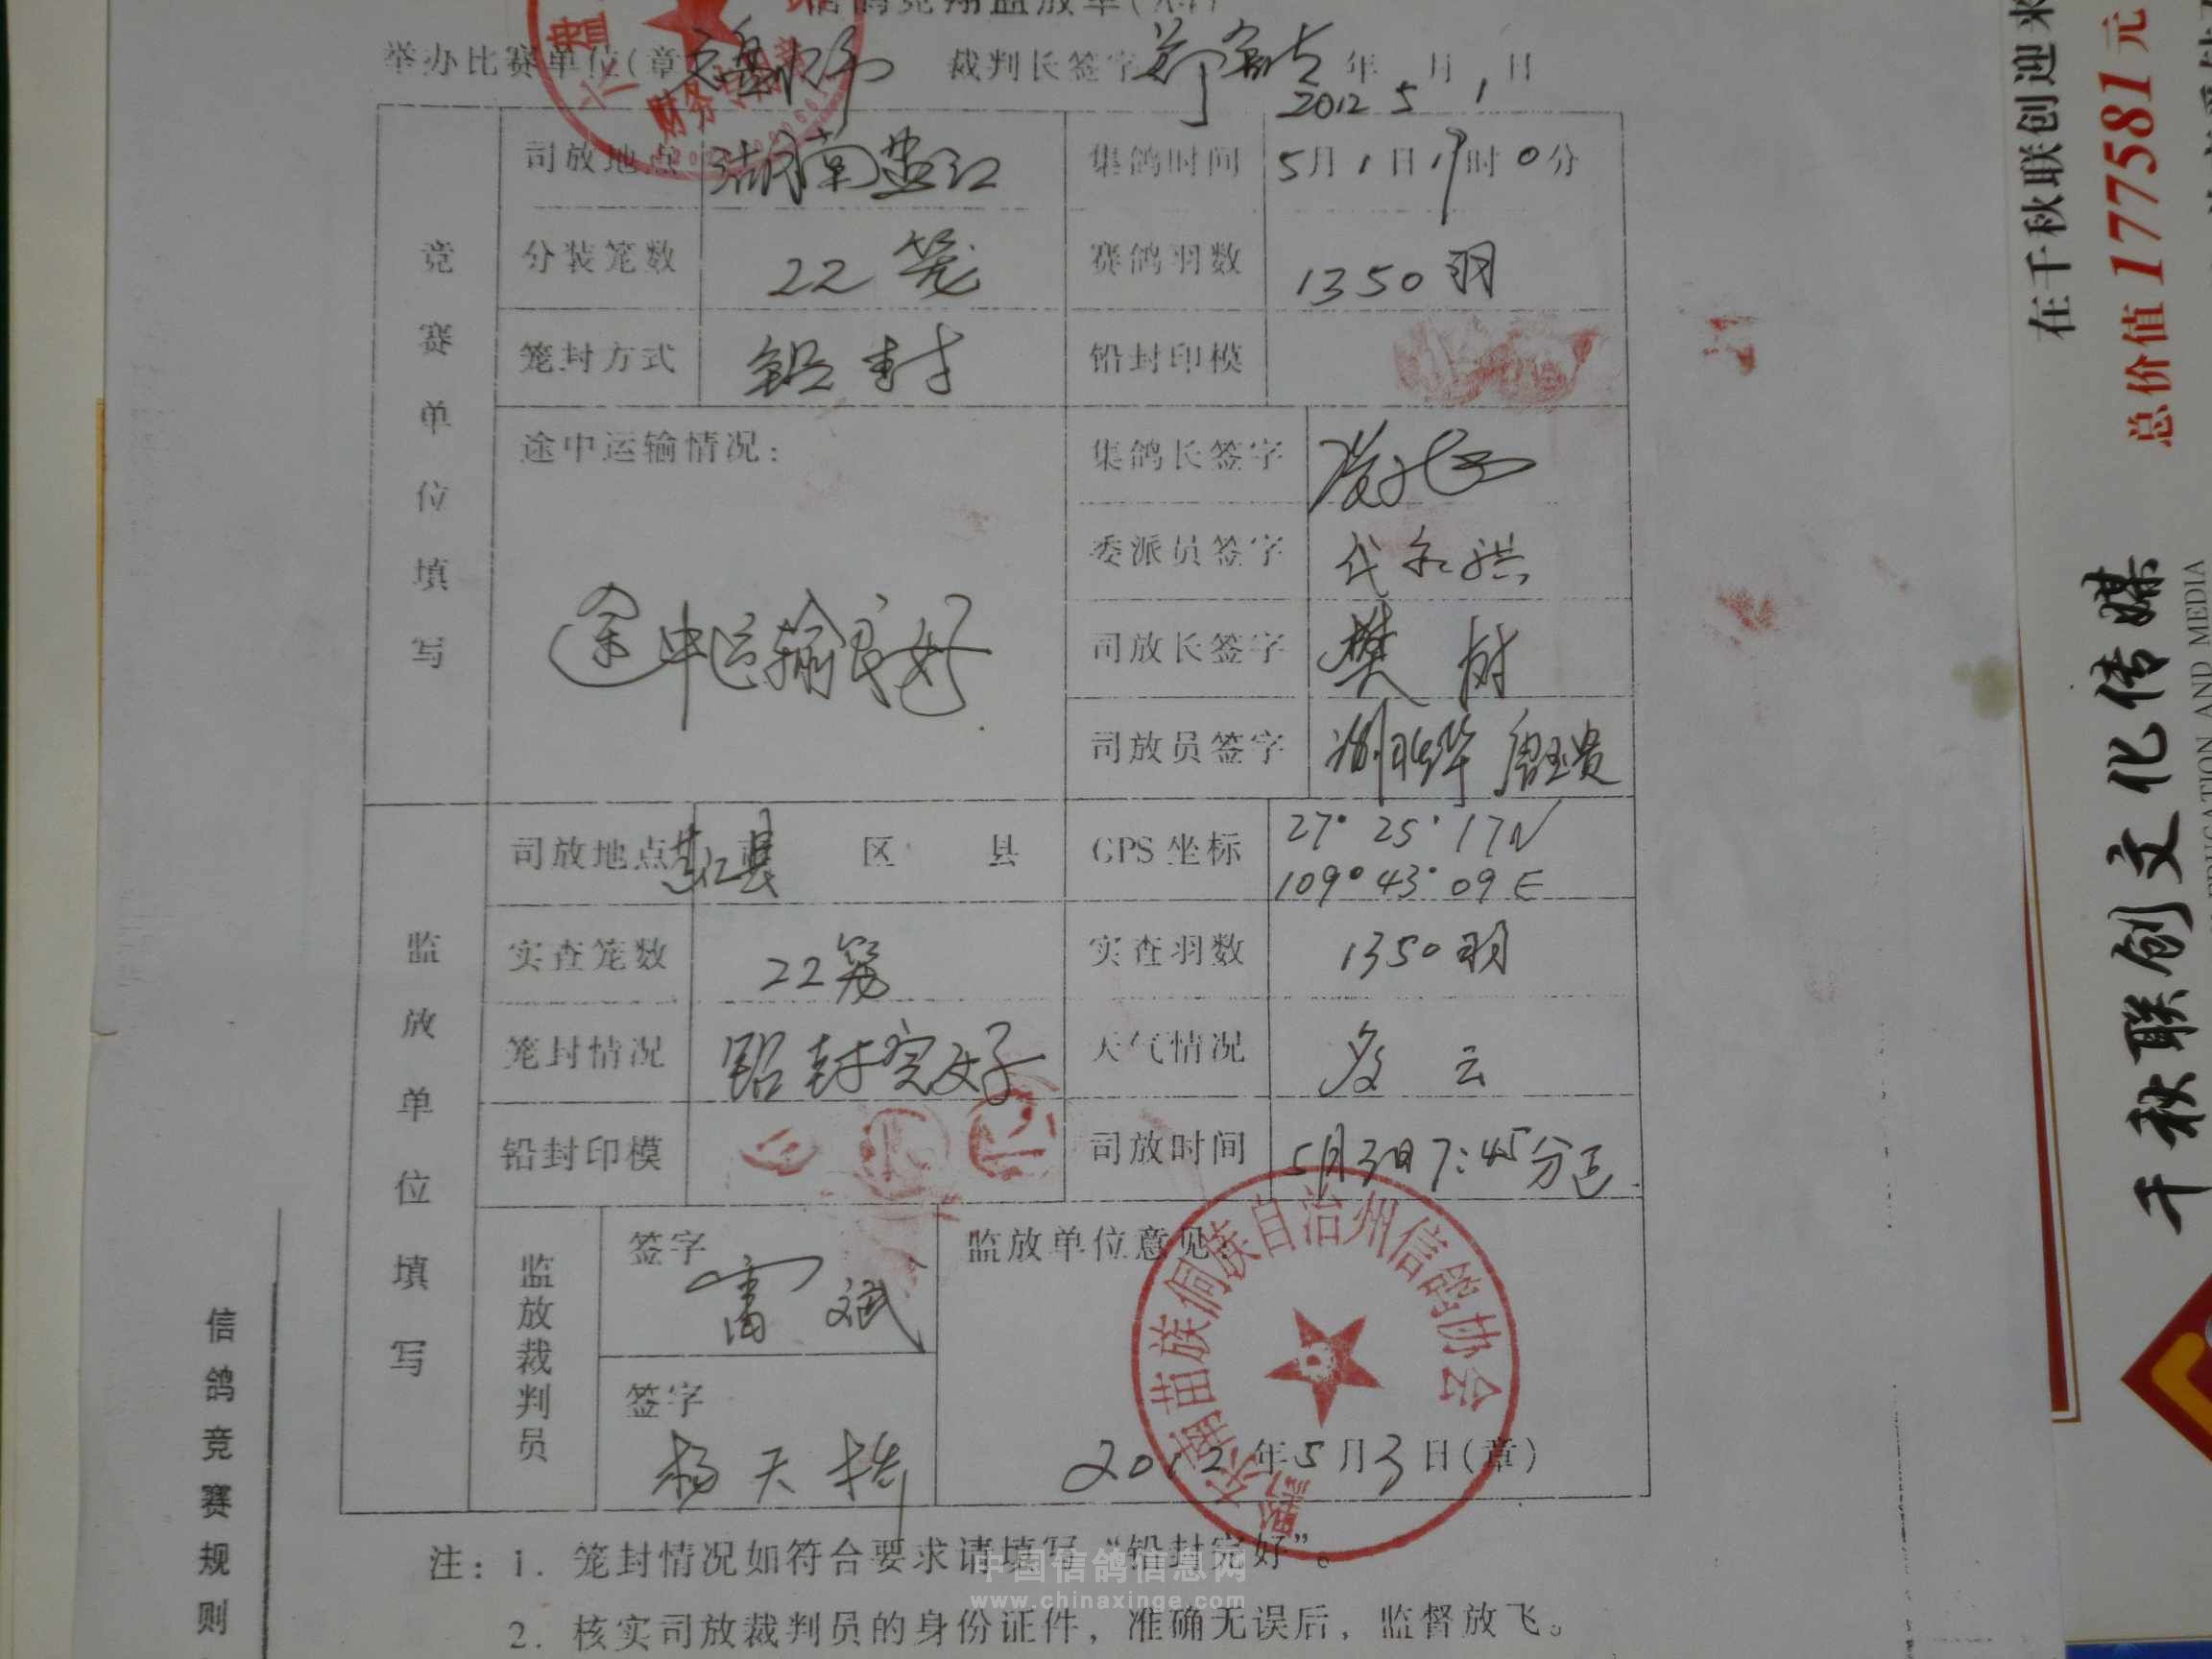 信鸽竞翔监放单
举办比赛单位(章 裁判长签字 年 月 日
2012 5 1
财务专用章
司放地点 湖南芷江 集鸽时间 5月1日19时0分
分装笼数 22笼 赛鸽羽数 1350羽
笼封方式 铅封 铅封印模
竞赛单位填写
途中运输情况:
途中运输良好
集鸽长签字
委派员签字 代永洪
司放长签字 樊树
司放员签字
监放单位填写
司放地点 芷江县 市 区 县 GPS坐标 27° 25' 17N
109° 43' 09E
实查笼数 22笼 实查羽数 1350羽
笼封情况 铅封完好 天气情况 多云
铅封印模 司放时间 5月3日7:45分
监放裁判员
签字 雷斌
签字 杨天
监放单位意见:
黔东南苗族侗族自治州信鸽协会
2012年5月3日(章)
注: 1. 笼封情况如符合要求请填写“铅封完好”。
2. 核实司放裁判员的身份证件, 准确无误后, 监督放飞。
信鸽竞赛规则
中国信鸽信息网
www.chinaxinge.com
在千秋联创迎来
总价值177581元
千秋联创文化传媒
EDUCATION AND MEDIA